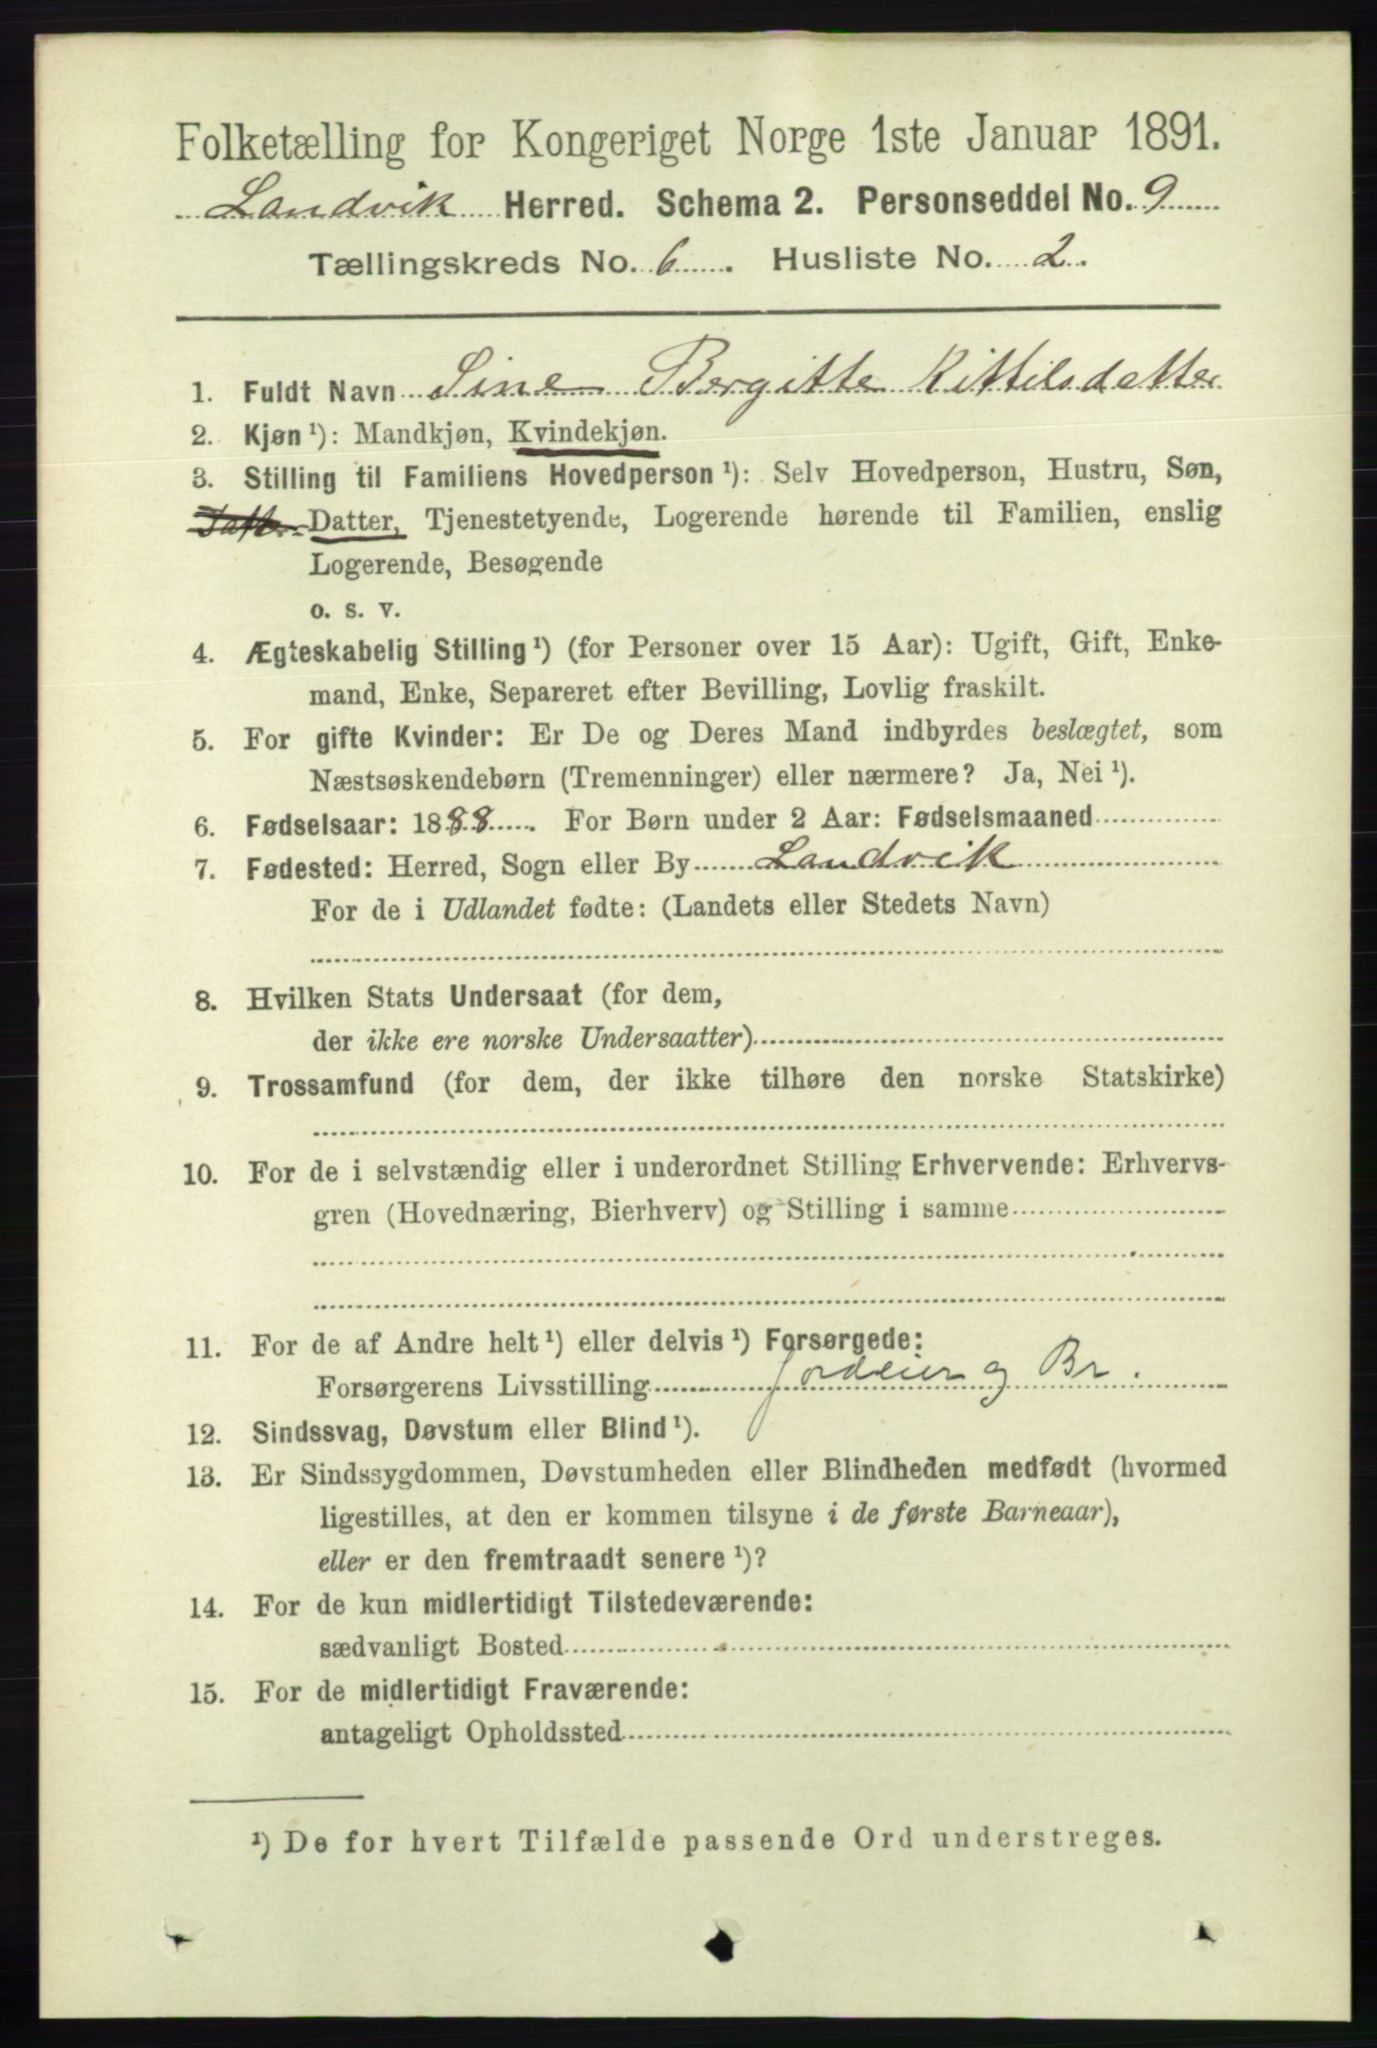 Folketælling for Kongeriget Norge 1ste Januar 1891.
Landvik Herred. Schema 2. Personseddel No. 9
Tællingskreds No. 6. Husliste No. 2.
1. Fuldt Navn Sine Bergitte Kittilsdatter
2. Kjøn ¹): Mandkjøn, Kvindekjøn.
3. Stilling til Familiens Hovedperson ¹): Selv Hovedperson, Hustru, Søn,
Datter, Tjenestetyende, Logerende hørende til Familien, enslig
Logerende, Besøgende
o. s. v.
4. Ægteskabelig Stilling ¹) (for Personer over 15 Aar): Ugift, Gift, Enke-
mand, Enke, Separeret efter Bevilling, Lovlig fraskilt.
5. For gifte Kvinder: Er De og Deres Mand indbyrdes beslægtet, som
Næstsøskendebørn (Tremenninger) eller nærmere? Ja, Nei ¹).
6. Fødselsaar: 1888. For Børn under 2 Aar: Fødselsmaaned
7. Fødested: Herred, Sogn eller By Landvik
For de i Udlandet fødte: (Landets eller Stedets Navn)
8. Hvilken Stats Undersaat (for dem,
der ikke ere norske Undersaatter)
9. Trossamfund (for dem, der ikke tilhøre den norske Statskirke)
10. For de i selvstændig eller i underordnet Stilling Erhvervende: Erhvervs-
gren (Hovednæring, Bierhverv) og Stilling i samme
11. For de af Andre helt ¹) eller delvis ¹) Forsørgede:
Forsørgerens Livsstilling Jordeier og Br.
12. Sindssvag, Døvstum eller Blind ¹).
13. Er Sindssygdommen, Døvstumheden eller Blindheden medfødt (hvormed
ligestilles, at den er kommen tilsyne i de første Barneaar),
eller er den fremtraadt senere ¹)?
14. For de kun midlertidigt Tilstedeværende:
sædvanligt Bosted
15. For de midlertidigt Fraværende:
antageligt Opholdssted
¹) De for hvert Tilfælde passende Ord understreges.